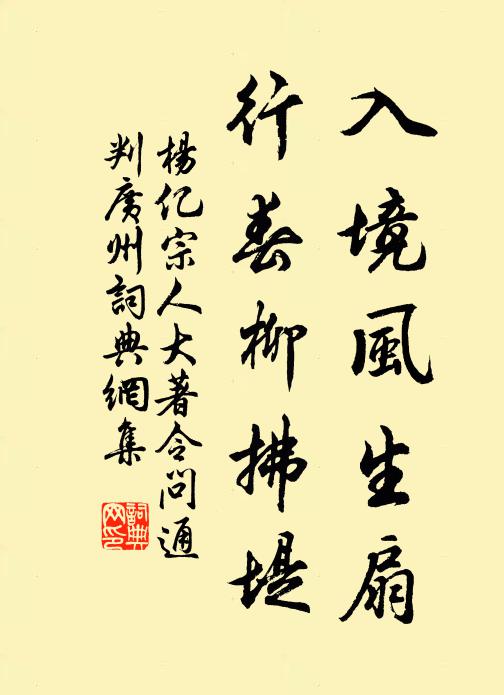 入境風生扇
行春柳拂堤
楊億宗人大著令問通
判廣州詞典網集
詞典
网印